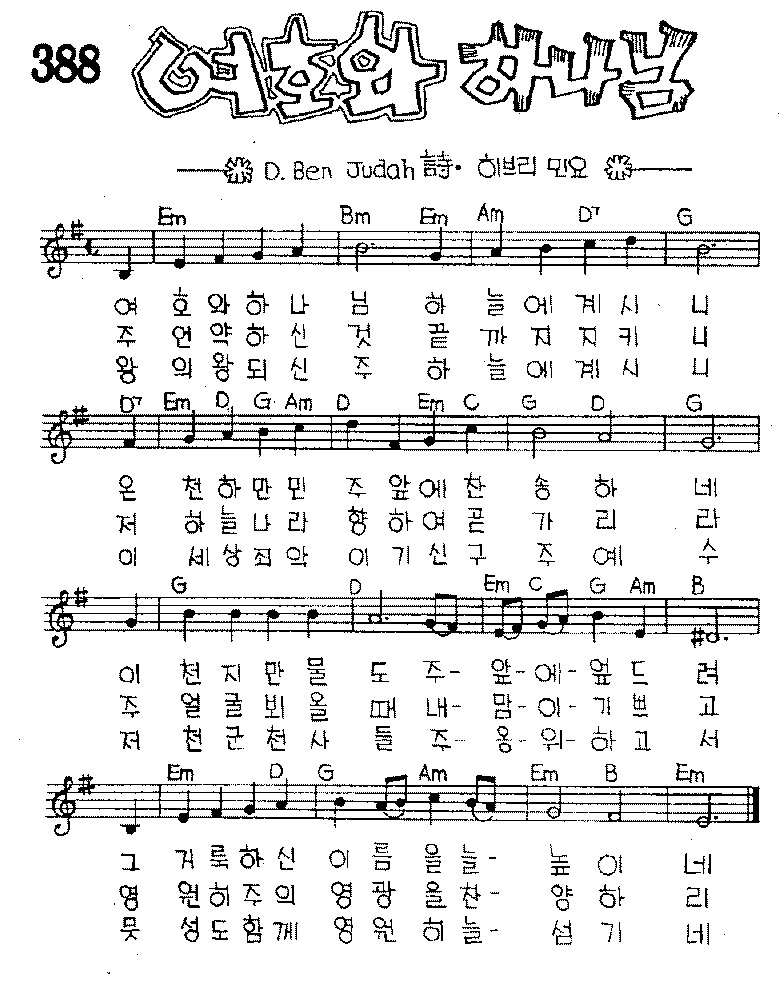 388 여호와 하나님
D. Ben Judah 詩· 히브리 민요
Em Bm Em Am D7 G
여 호와하나 님 하 늘에계시 니
주 언약하신 것 끝 까지지키 니
왕 의왕되신 주 하 늘에계시 니
D7 Em D G Am D Em C G D G
온 천하만민 주앞에찬 송하 네
저 하늘나라 향하여곧 가리 라
이 세상죄악 이기신구 주예 수
G D Em C G Am B
이 천지만물 도 주- 앞-에-엎드 려
주 얼굴뵈올 때 내- 맘-이-기쁘 고
저 천군천사 들 주- 옹-위-하고 서
Em D G Am Em B Em
그 거룩하신 이름을늘- 높이 네
영 원히주의 영광을찬- 양하 리
뭇 성도함께 영원히늘- 섬기 네